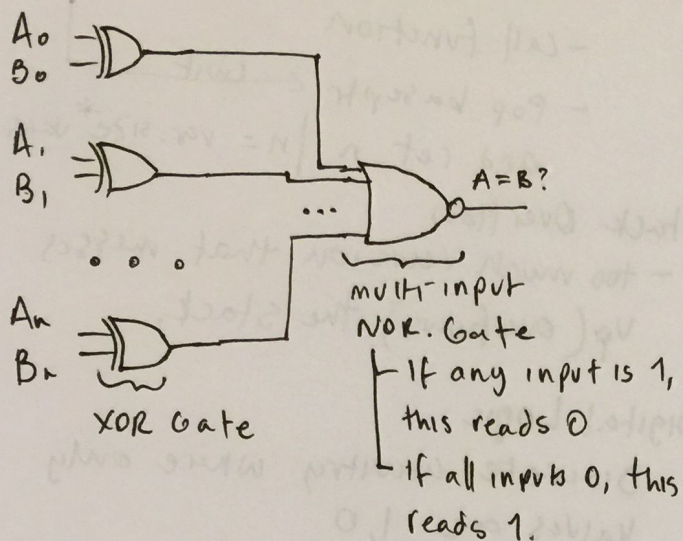 A0
B0
A1
B1
...
An
Bn
XOR Gate
A=B?
multi-input
NOR. Gate
- If any input is 1,
this reads 0
- If all inputs 0, this
reads 1.